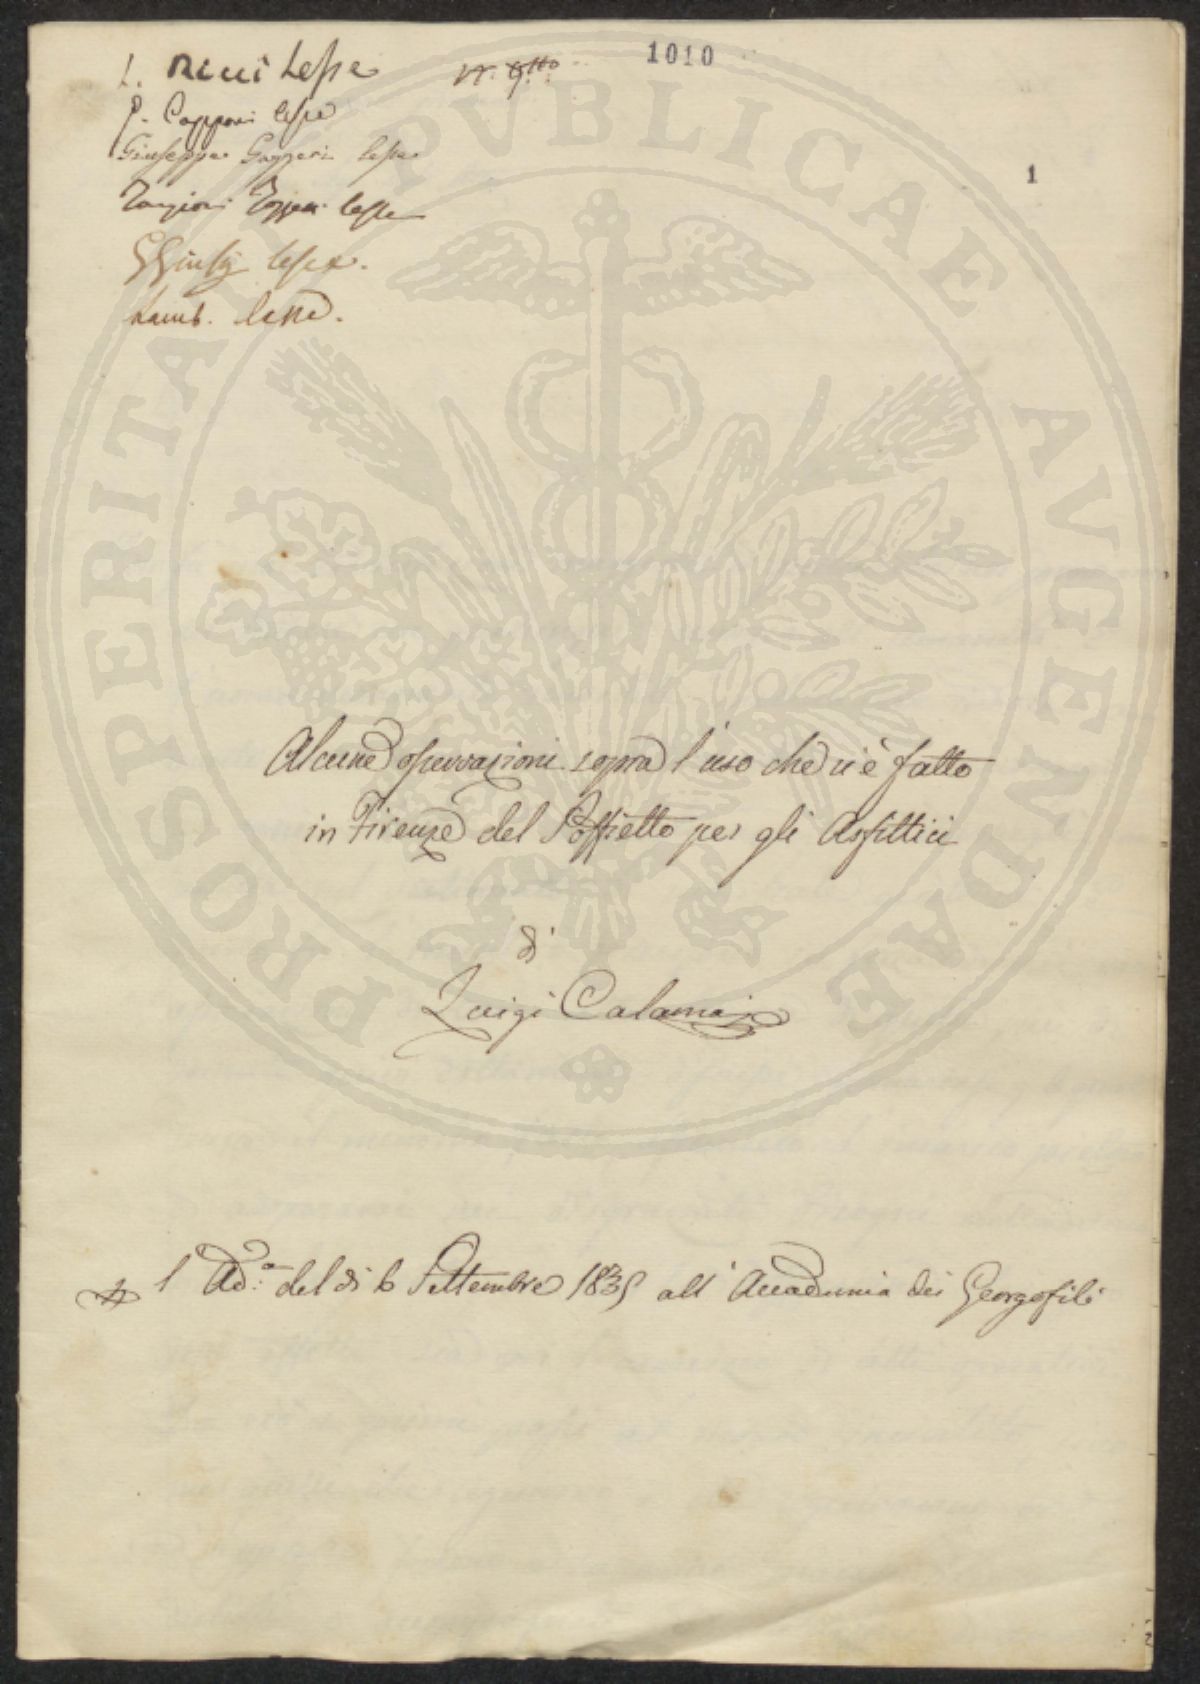 L. Ricci Lesse
1010
G. Capponi lesse
1
Giuseppe Gazzeri lesse
Targioni Tozzetti lesse
GGiulj lesse.
Lamb. lesse.
PROSPERITATI PVBLICAE AVGENDAE
Alcune osservazioni sopra l'uso che si è fatto
in Firenze del Soffietto per gli Asfittici
di
Luigi Calamai
l'Ad.a del di 6 Settembre 1835 all'Accademia dei Georgofili